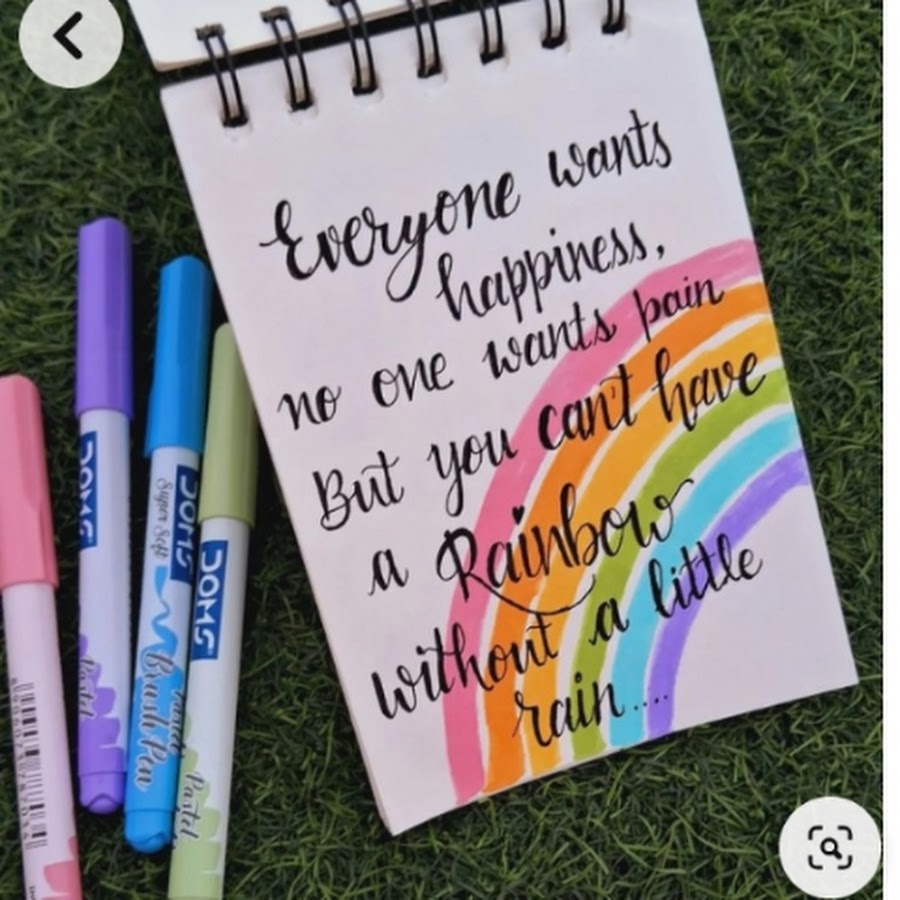 Everyone wants
happiness,
no one wants pain
But you can't have
a Rainbow
without a little
rain....
DOMS
DOMS
Super Soft
Brush Pen
DOMS
Pastel
Pastel